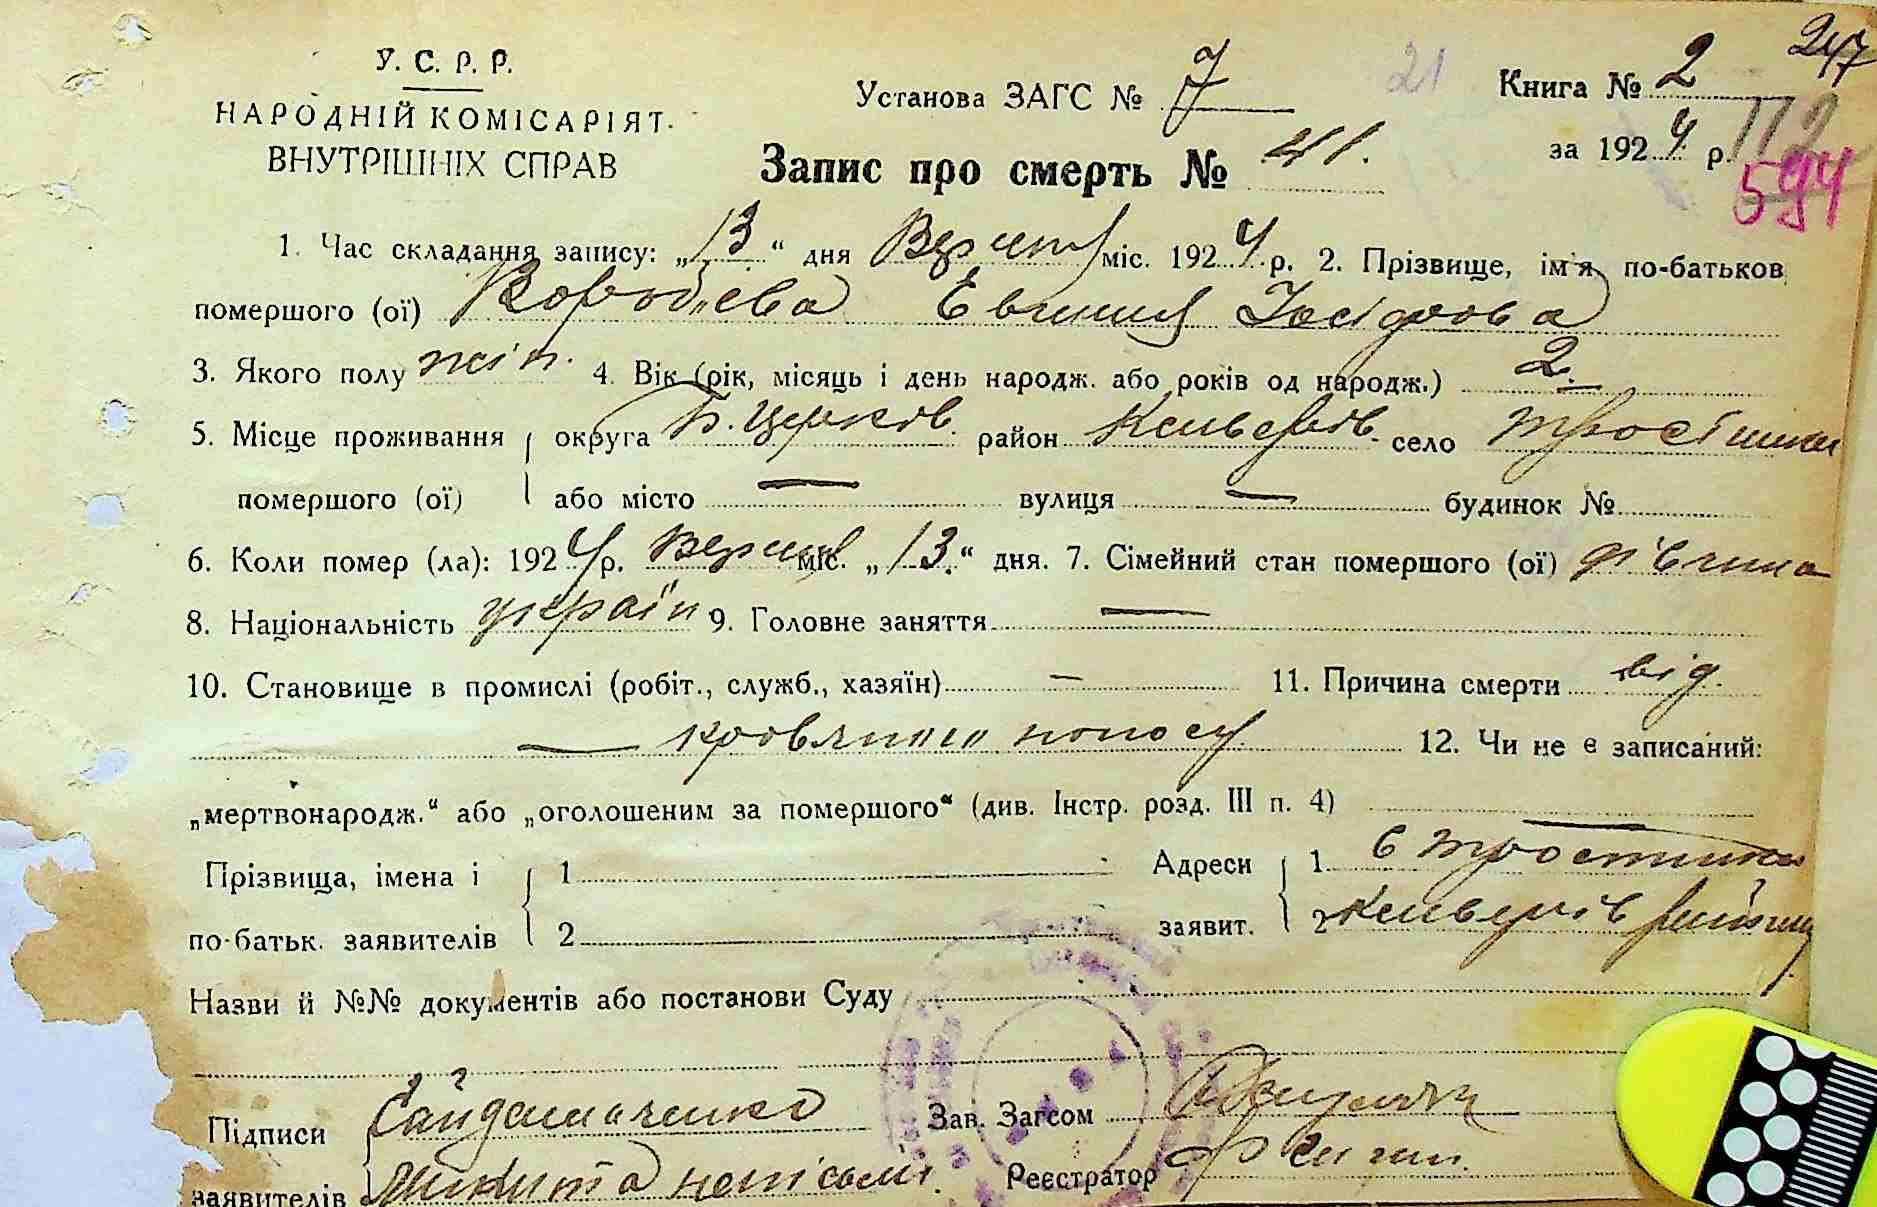 247
У. С. Р. Р.
НАРОДНІЙ КОМІСАРІЯТ
ВНУТРІШНІХ СПРАВ
Установа ЗАГС № 7 21 Книга № 2
за 1924 р. 112
Запис про смерть № 41. 594
1. Час складання запису: „13“ дня Версня міс. 1924 р. 2. Прізвище, ім'я, по-батьков
помершого (ої) Коробʼєва Евгения
3. Якого полу жін. 4. Вік (рік, місяць і день народж. або років од народж.) 2.
5. Місце проживання { округа Б. Церків. район село
помершого (ої) або місто — вулиця — будинок №
6. Коли помер (ла): 1924 р. міс. „13.“ дня. 7. Сімейний стан помершого (ої) дівчина
8. Національність україн 9. Головне заняття —
10. Становище в промислі (робіт., служб., хазяїн) — 11. Причина смерти від
— поносу 12. Чи не є записаний:
„мертвонародж.“ або „оголошеним за помершого“ (див. Інстр. розд. III п. 4) —
Прізвища, імена і { 1 Адреси { 1 с
по-батьк. заявителів 2 заявит. 2
Назви й №№ документів або постанови Суду
Підписи { Гайдамаченко Зав. Загсом
заявителів Микита Реєстратор